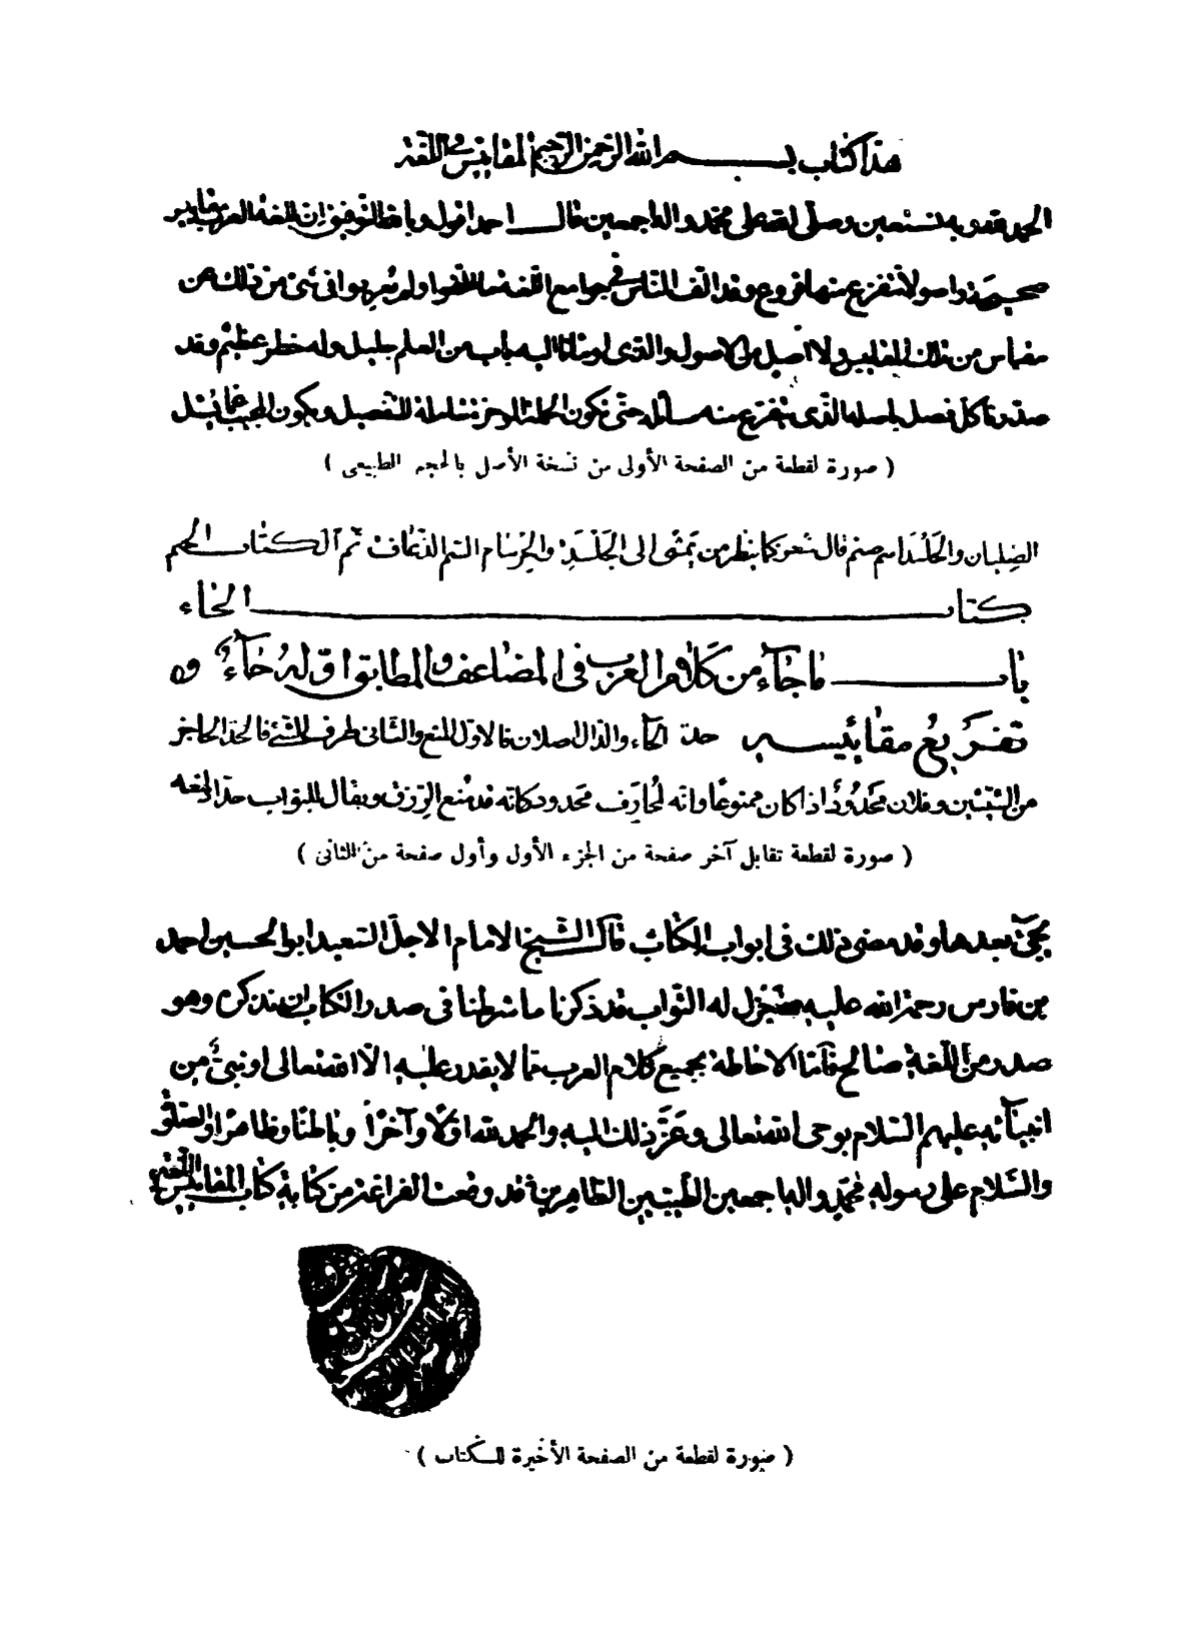 هذا كتاب بسم الله الرحمن الرحيم المقاييس في اللغة
الحمد لله وبه نستعين وصلى الله على محمد واله اجمعين قال احمد اقول وبالله التوفيق ان للغة العرب مقاييس
صحيحة واصولا تتفرع منها فروع وقد الف الناس في جوامع اللغة ما الفوا ولم يعربوا في شئ من ذلك عن
مقياس من تلك المقاييس ولا اصل من الاصول والذى اومانا اليه باب من العلم جليل وله خطر عظيم وقد
صدرنا كل فصل باصله الذى يتفرع منه مسائله حتى تكون الجملة الموجزة شاملة للتفصيل ويكون المجيب عما يسئل
( صورة لقطعة من الصفحة الأولى من نسخة الأصل بالحجم الطبيعى )
الصلبان والجلسد اسم صنم قال شعر كما بيقر من يمشى الى الجلسد والجرسام السم الذعاف تم آلكتاب الجيم
كتاب الخاء
باب ما جآء من كلام العرب في المضاعف والمطابق اوله خآء و
تفريع مقائيسه حد الحآء والدال اصلان فالاول المنع والثانى طرف الشئ فالحد الحاجز
من الشيئين وفلان محدود اذا كان ممنوعا وانه لمحارف محدود كانه قد منع الرزق ويقال للبواب حداد لمنعه
( صورة لقطعة تقابل آخر صفحة من الجزء الأول وأول صفحة من الثانى )
يجئ بعدها وقد مضى ذلك في ابواب الكتاب قال الشيخ الامام الاجل السعيد ابو الحسين احمد
بن فارس رحمة الله عليه له الثواب قد ذكرنا ما شرطنا في صدر الكتاب ان نذكره وهو
صدر من اللغة صالح فآما الاحاطة بجميع كلام العرب مما لا يقدر عليه الا الله تعالى او نبى من
انبيآئه عليهم السلام بوحى الله تعالى وعز ذلك اليه والحمد لله اولا وآخرا وباطنا وظاهرا والصلوة
والسلام على رسوله محمد واله اجمعين الطيبين الطاهرين قد وقعت الفراغة من كتابة كتاب المقاييس اللغة
( صورة لقطعة من الصفحة الأخيرة للكتاب )